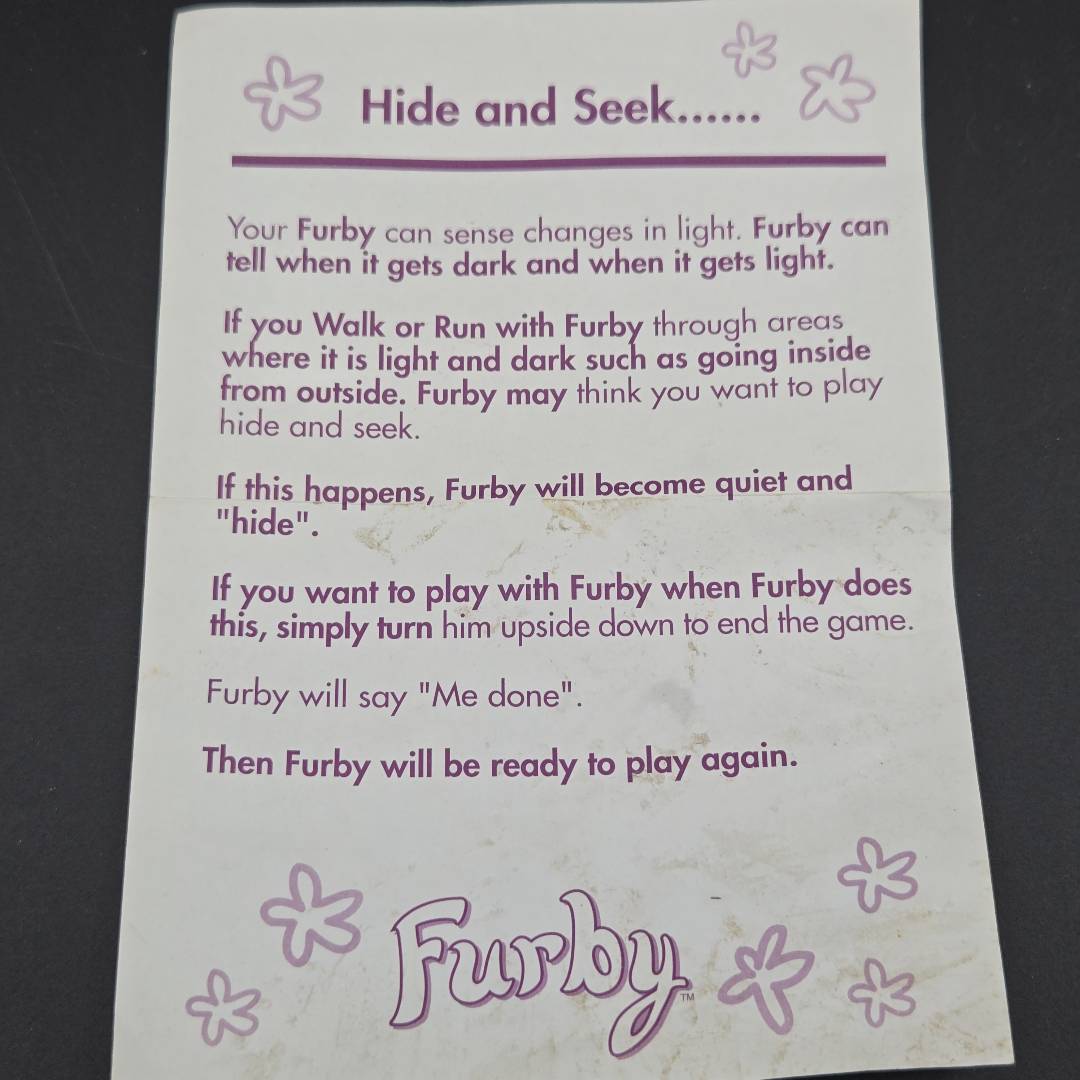 Hide and Seek......
Your Furby can sense changes in light. Furby can
tell when it gets dark and when it gets light.
If you Walk or Run with Furby through areas
where it is light and dark such as going inside
from outside. Furby may think you want to play
hide and seek.
If this happens, Furby will become quiet and
"hide".
If you want to play with Furby when Furby does
this, simply turn him upside down to end the game.
Furby will say "Me done".
Then Furby will be ready to play again.
Furby™